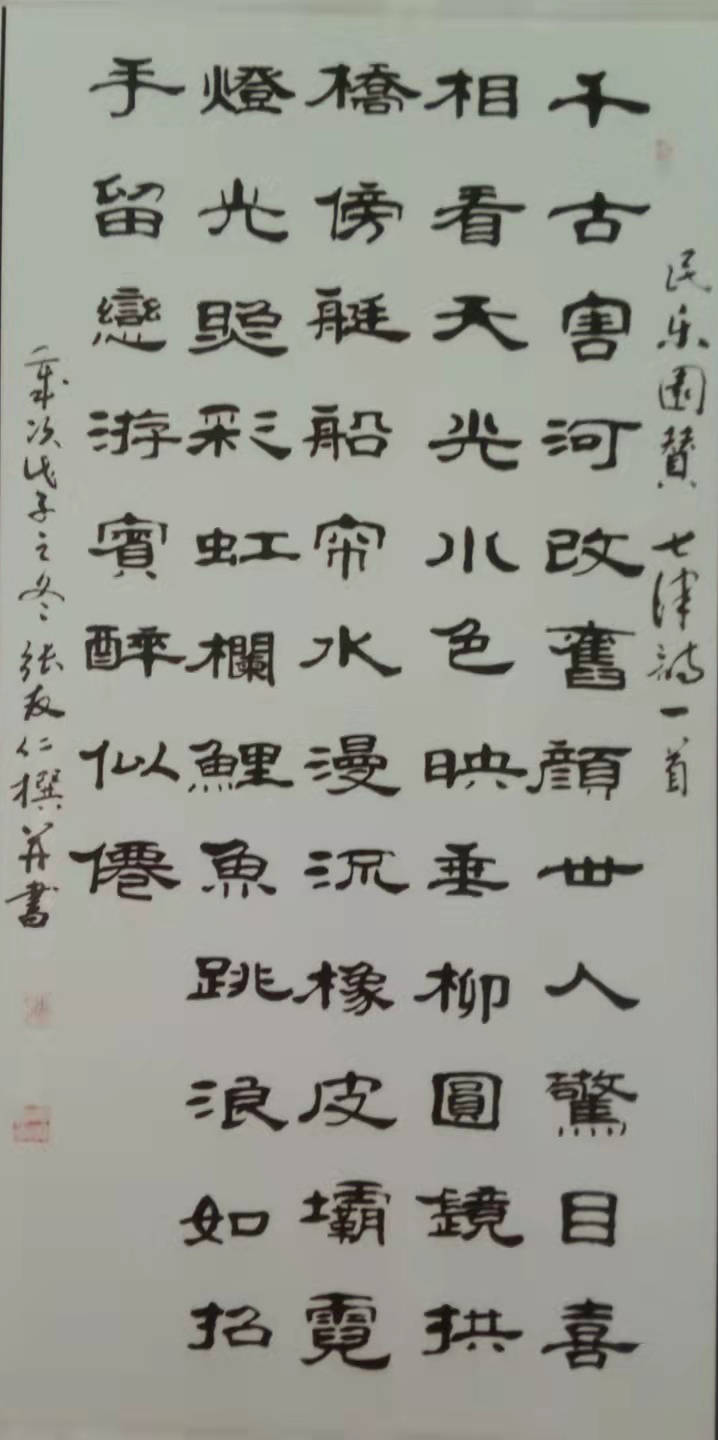 民乐園賛 七律詩一首
千古害河改舊顔世人驚目喜
相看天光水色映垂柳圓鏡拱
橋傍艇船帘水漫流橡皮壩霓
燈光照彩虹欄鯉魚跳浪如招
手留戀游賓醉似僊
歲次戊子之冬張友仁撰并書